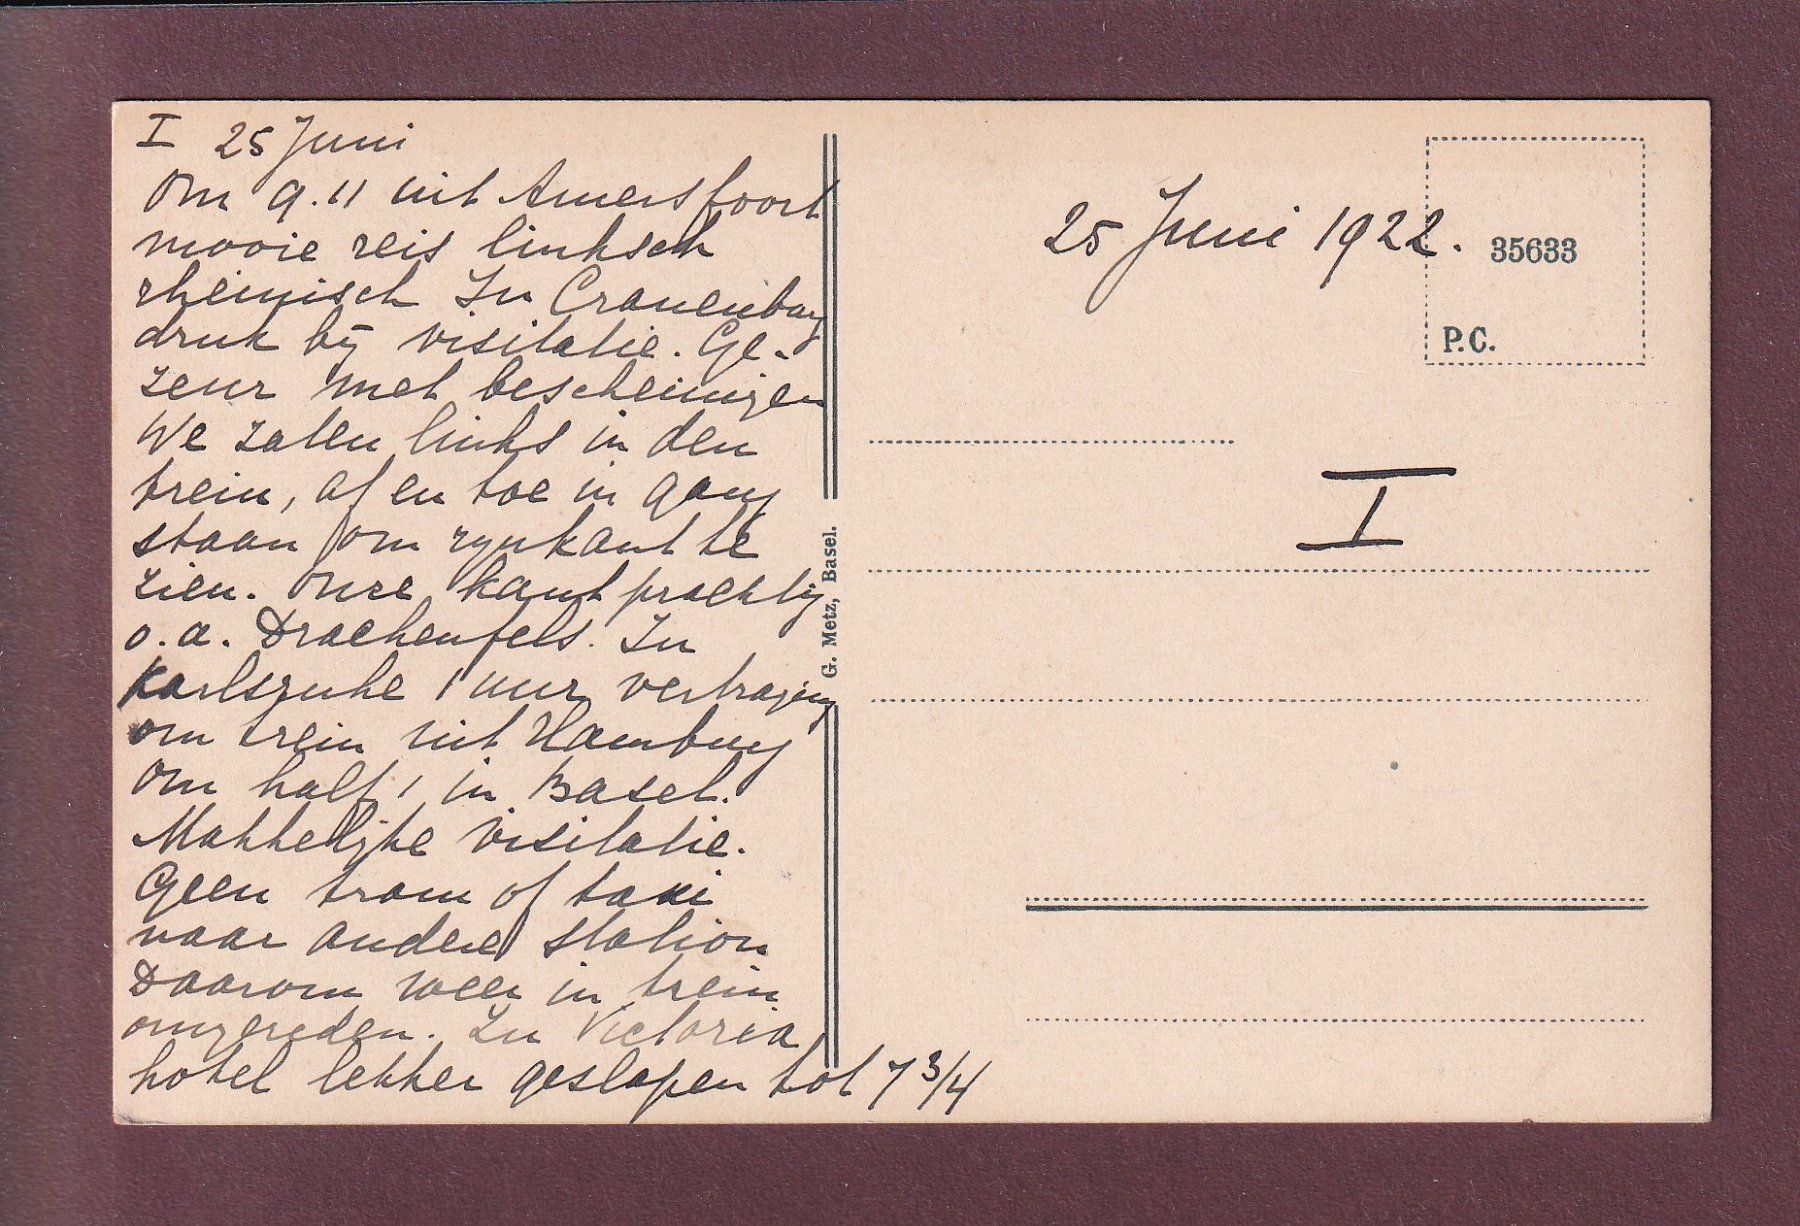 I 25 Juni
Om 9.11 uit Amersfoort
mooie reis linksch
rheinisch In Cranenburg
druk bij visitatie. Ge-
zeur met bescheinigen
We zaten links in den
trein, af en toe in gang
staan om rynkant te
zien. Onze kant prachtig
o.a. Drachenfels. In
Karlsruhe 1 uur vertraging
om trein uit Hamburg
Om half 1 in Basel.
Makkelijke visitatie.
Geen tram of taxi
naar andere station
Daarom weer in trein
omgereden. In Victoria
hotel lekker geslapen tot 7 3/4
G. Metz, Basel.
25 Juni 1922.
35633
P.C.
I